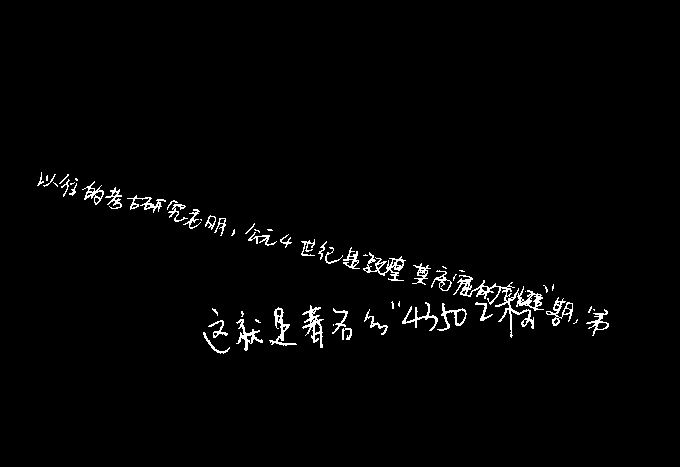 以往的考古研究表明，公元4世纪是敦煌莫高窟的创建期，第
这就是著名的“4350工程”